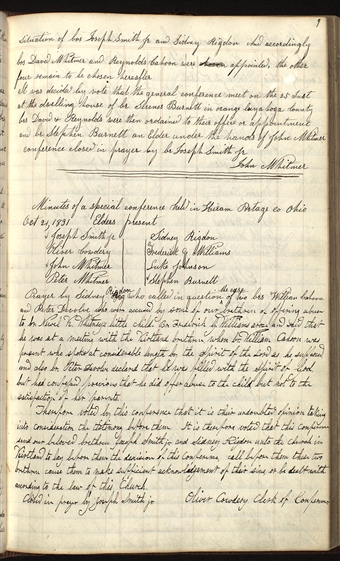 9
situation of brs Joseph Smith jr and Sidney Rigdon And accordingly
brs David Whitmer and Reynolds Cahoon were appointed, the other
four remain to be chosen hereafter
It was decided by vote that the general conference meet on the 25 inst
at the dwelling house of br Sirenes Burnett in orange Cuyahoga County
brs David & Reynolds were then ordained to their office or appointment
and br Stephen Burnett an Elder under the hands of John Whitmer
conference closed in prayer by br Joseph Smith jr
John Whitmer
Minutes of a special conference held in Hiram Portage co Ohio
Oct 21, 1831 Elders present
Joseph Smith jr Sidney Rigdon
Oliver Cowdery Frederick G Williams
John Whitmer Luke Johnson
Peter Whitmer Stephen Burnett
Prayer by Sidney Rigdon who called in question the case of two brs William Cahoon
and Peter Devolve who were accused by some of our brethren of offering abuse
to br Newel K. Whitneys little child. Br Frederick G. Williams arose and said that
he was at a meeting with the Kirtland brethren when br William Cahoon was
present who spoke at considerable length by the spirit of the Lord as he supposed
and also br Peter Devolve declared that he was filled with the spirit of God
but had confessed previous that he did offer abuse to the child but not to the
satisfaction of her parents.
Therefore voted by this conference that it is their undoubted opinion taking
into consideration the testimony before them. It is therefore voted that this conference
send our beloved brethren Joseph Smith jr. and Sidney Rigdon unto the church in
Kirtland to lay before them the decision of this conference, call before them these two
brethren cause them to make sufficient acknowledgement of their sins or be dealt with
according to the law of this Church.
Closed in prayer by Joseph Smith jr. Oliver Cowdery Clerk of Conference